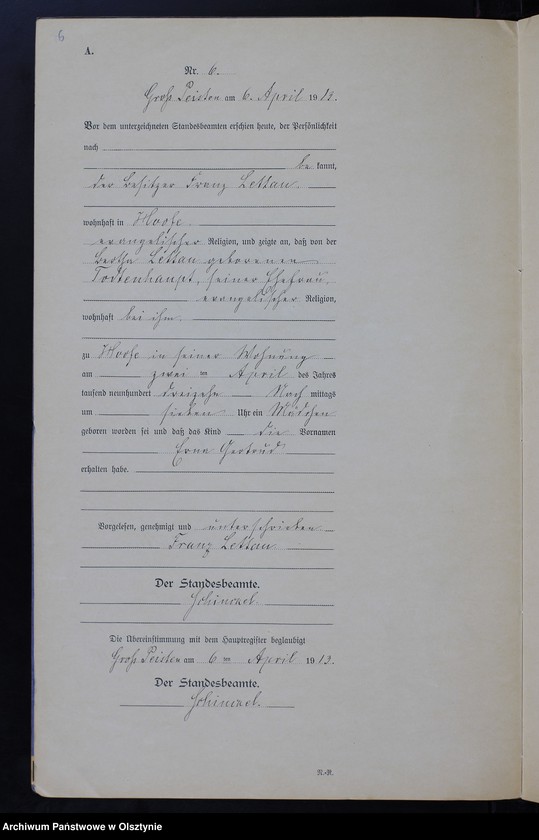 6
A.
Nr. 6.
Groß Peisten am 6. April 1913.
Vor dem unterzeichneten Standesbeamten erschien heute, der Persönlichkeit
nach
be kannt,
der Besitzer Franz Lettau.
wohnhaft in Hoofe
evangelischer Religion, und zeigte an, daß von der
Bertha Lettau geborenen
Todtenhaupt, seiner Ehefrau,
evangelischer Religion,
wohnhaft bei ihm
zu Hoofe in seiner Wohnung
am zwei ten April des Jahres
tausend neunhundert dreizehn Nach mittags
um sieben Uhr ein Mädchen
geboren worden sei und daß das Kind die Vornamen
Erna Gertrud
erhalten habe.
Vorgelesen, genehmigt und unterschrieben
Franz Lettau
Der Standesbeamte.
Schinckel.
Die Übereinstimmung mit dem Hauptregister beglaubigt
Groß Peisten am 6 ten April 1913.
Der Standesbeamte.
Schinckel.
N.-R.
Archiwum Państwowe w Olsztynie